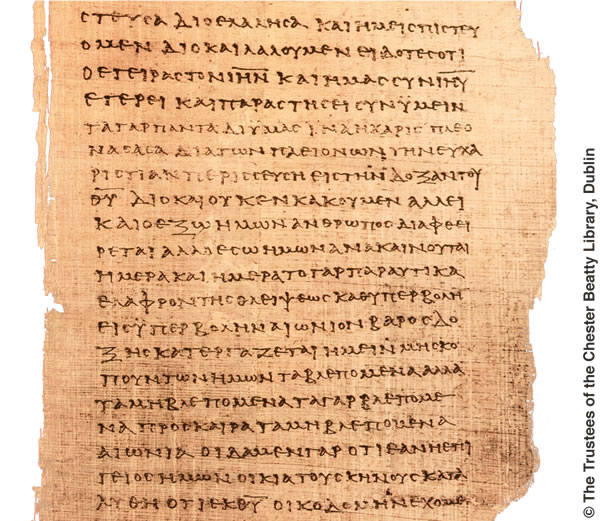 ϹΤΕΥϹΑ ΔΙΟ ΕΛΑΛΗϹΑ ΚΑΙ ΗΜΕΙϹ ΠΙϹΤΕΥ
ΟΜΕΝ ΔΙΟ ΚΑΙ ΛΑΛΟΥΜΕΝ ΕΙΔΟΤΕϹ ΟΤΙ
Ο ΕΓΕΙΡΑϹ ΤΟΝ Ι͞Η͞Ν ΚΑΙ ΗΜΑϹ ϹΥΝ Ι͞Η͞Υ
ΕΓΕΡΕΙ ΚΑΙ ΠΑΡΑϹΤΗϹΕΙ ϹΥΝ ΫΜΕΙΝ
ΤΑ ΓΑΡ ΠΑΝΤΑ ΔΙ ΥΜΑϹ ΙΝΑ Η ΧΑΡΙϹ ΠΛΕΟ
ΝΑϹΑϹΑ ΔΙΑ ΤΩΝ ΠΛΕΙΟΝΩΝ ΤΗΝ ΕΥΧΑ
ΡΙϹΤΙΑΝ ΠΕΡΙϹϹΕΥϹΗ ΕΙϹ ΤΗΝ ΔΟΞΑΝ ΤΟΥ
Θ͞Υ ΔΙΟ ΚΑΙ ΟΥΚ ΕΝΚΑΚΟΥΜΕΝ ΑΛΛ ΕΙ
ΚΑΙ Ο ΕΞΩ ΗΜΩΝ ΑΝΘΡΩΠΟϹ ΔΙΑΦΘΕΙ
ΡΕΤΑΙ ΑΛΛ Ο ΕϹΩ ΗΜΩΝ ΑΝΑΚΑΙΝΟΥΤΑΙ
ΗΜΕΡΑ ΚΑΙ ΗΜΕΡΑ ΤΟ ΓΑΡ ΠΑΡΑΥΤΙΚΑ
ΕΛΑΦΡΟΝ ΤΗϹ ΘΛΕΙΨΕΩϹ ΚΑΘ ΥΠΕΡΒΟΛΗ
ΕΙϹ ΥΠΕΡΒΟΛΗΝ ΑΙΩΝΙΟΝ ΒΑΡΟϹ ΔΟ
ΞΗϹ ΚΑΤΕΡΓΑΖΕΤΑΙ ΗΜΕΙΝ ΜΗ ϹΚΟ
ΠΟΥΝΤΩΝ ΗΜΩΝ ΤΑ ΒΛΕΠΟΜΕΝΑ ΑΛΛΑ
ΤΑ ΜΗ ΒΛΕΠΟΜΕΝΑ ΤΑ ΓΑΡ ΒΛΕΠΟΜΕ
ΝΑ ΠΡΟϹΚΑΙΡΑ ΤΑ ΜΗ ΒΛΕΠΟΜΕΝΑ
ΑΙΩΝΙΑ ΟΙΔΑΜΕΝ ΓΑΡ ΟΤΙ ΕΑΝ Η ΕΠΙ
ΓΕΙΟϹ ΗΜΩΝ ΟΙΚΙΑ ΤΟΥ ϹΚΗΝΟΥϹ ΚΑΤΑ
ΛΥΘΗ ΟΤΙ ΕΚ Θ͞Υ ΟΙΚΟΔΟΜΗΝ ΕΧΟΜΕ
© The Trustees of the Chester Beatty Library, Dublin